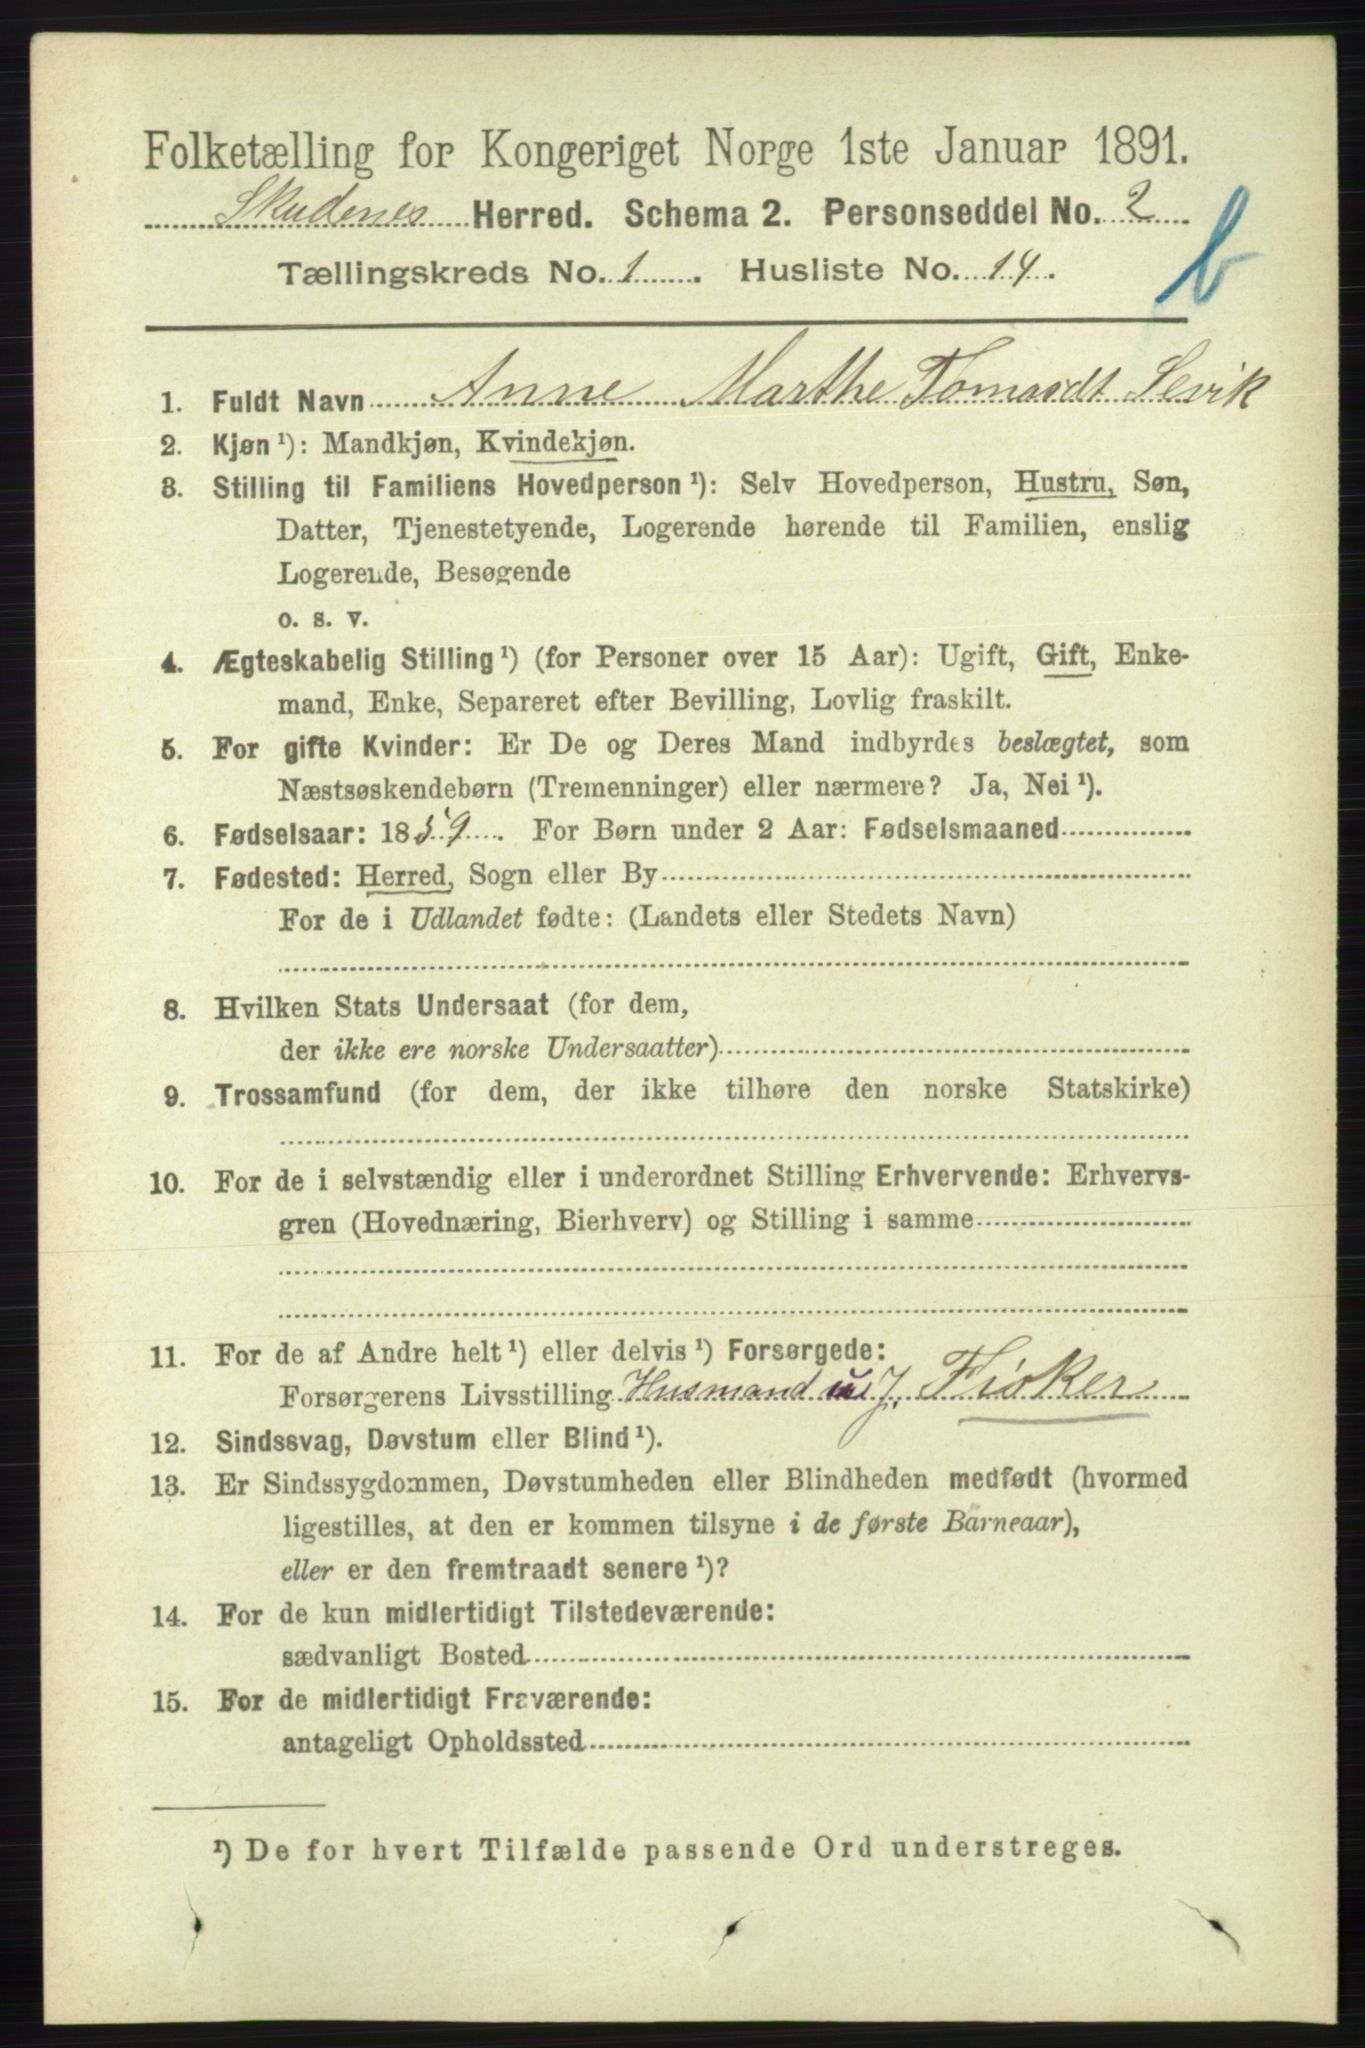 Folketælling for Kongeriget Norge 1ste Januar 1891.
Skudenes Herred. Schema 2. Personseddel No. 2
b
Tællingskreds No. 1. Husliste No. 14.
1. Fuldt Navn Anne Marthe Tomasdt Sevik
2. Kjøn ¹): Mandkjøn, Kvindekjøn.
3. Stilling til Familiens Hovedperson ¹): Selv Hovedperson, Hustru, Søn,
Datter, Tjenestetyende, Logerende hørende til Familien, enslig
Logerende, Besøgende
o. s. v.
4. Ægteskabelig Stilling ¹) (for Personer over 15 Aar): Ugift, Gift, Enke-
mand, Enke, Separeret efter Bevilling, Lovlig fraskilt.
5. For gifte Kvinder: Er De og Deres Mand indbyrdes beslægtet, som
Næstsøskendebørn (Tremenninger) eller nærmere? Ja, Nei ¹).
6. Fødselsaar: 1859. For Børn under 2 Aar: Fødselsmaaned
7. Fødested: Herred, Sogn eller By
For de i Udlandet fødte: (Landets eller Stedets Navn)
8. Hvilken Stats Undersaat (for dem,
der ikke ere norske Undersaatter)
9. Trossamfund (for dem, der ikke tilhøre den norske Statskirke)
10. For de i selvstændig eller i underordnet Stilling Erhvervende: Erhvervs-
gren (Hovednæring, Bierhverv) og Stilling i samme
11. For de af Andre helt ¹) eller delvis ¹) Forsørgede:
Forsørgerens Livsstilling Husmand u J. Fisker
12. Sindssvag, Døvstum eller Blind ¹).
13. Er Sindssygdommen, Døvstumheden eller Blindheden medfødt (hvormed
ligestilles, at den er kommen tilsyne i de første Barneaar),
eller er den fremtraadt senere ¹)?
14. For de kun midlertidigt Tilstedeværende:
sædvanligt Bosted
15. For de midlertidigt Fraværende:
antageligt Opholdssted
¹) De for hvert Tilfælde passende Ord understreges.